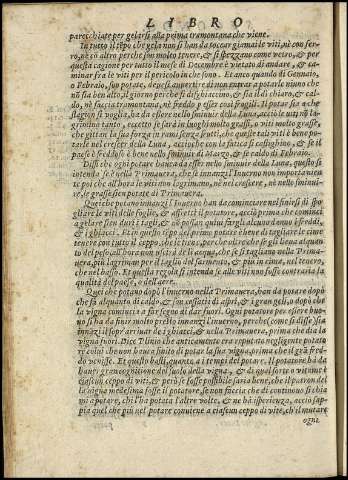 LIBRO
parecchiate per gelarsi alla prima tramontana che viene.
In tutto il tẽpo che gela non si han da toccar giamai le viti, nè con fer-
ro, nè cõ altro perche son molto tenere, & si spezzano come vetro, & per
questa cagione per tutto il mese di Decembre è vietato di andare, & ca-
minar fra le viti per il pericolo in che sono. Et anco quando di Gennaio,
o Febraio, son potate, devesi avvertir di non
che
se sia ben alto, il giorno perche si ghiacciano, & sia il dì chiaro, & cal-
do, nè faccia tramontana, nè freddo per esser così fragili. Il potar sia a che
stagion si voglia, ha da essere nello sminuir della Luna, acciò le viti nõ la-
grimino tanto, eccetto se sarà in luoghi molto grassi, o viti molto grasse,
che gittan la sua forza in rami senza frutti, che queste tali viti è bene po-
tarle nel crescer della Luna, acciò con la fatica si castighino, & se il
paese è freddo sò è bene nello sminuir di Marzo, & se caldo di Febraio.
Dissi che ogni potare bavea da esser nello sminuir della Luna, questo s'i
intende se è nella Primavera, che se innanzi l'Inverno non importa nien-
te poi che all'hora le viti non lagrimano, nè nel crescere, nè nello sminui-
re, le grasse si en potate al Primavera.
Quei che potano innanzi l'Inverno han da cominciare nel finirsi di spo-
gliare le viti delle foglie, & assetti il potatore, acciò prima che cominci
a gelare sien duri i tagli, & nõ possan quivi fargli alcun danno i freddi,
& i ghiacci. Et in ogni tempo che si potarà habbia d'avere tagliare le cime
tenere con tutto il ceppo, che le truova, per che oltre che se gli lieva alquan-
to del peso, all'hora non uscirà di lì acqua, che se si tagliano nella Prima-
vera, più lagrimaran per il taglio del sarmento, & più in cima, nel tenero,
che nel basso. Et questa regola s'intenda se alle viti non fosse contraria la
qualità del paese, o dell'aere.
Quei che potano dopò l'inverno nella Primavera, han da potare dopò
che fà alquanto di caldo, & son cessati di aspri, & i gran geli, o dopò che
la vigna comincia a far segno di dar fuori. Ogni potatore per essere buo-
no si ha da finir molto presto innanzi l'inverno, perche (come si disse) sia
innanzi il sopr'arrivar de i ghiacci, & nella Primavera, prima che dia la
vigna fuori. Dice Plinio che anticamente era reputato negligente potato-
re colui che non havea finito di potar la sua vigna, prima che la grà fred-
do venisse. Et questo basti, quanto a i tempi del potare. Il potatore hà da
haver gran cognitione del suolo della vigna, & di qual sorte o vitume è
ciascun ceppo di viti, & però se fosse possibile saria bene, che il patron del
la vigna medesima fosse il potatore, se non faccia che di continuo si chia
mi a potare, chi l'ha potata l'altre volte, & ne hà isperienza, acciò sap-
pia quel che più nel potare conviene a ciascun ceppo di vite, ch'il mutare
ogni